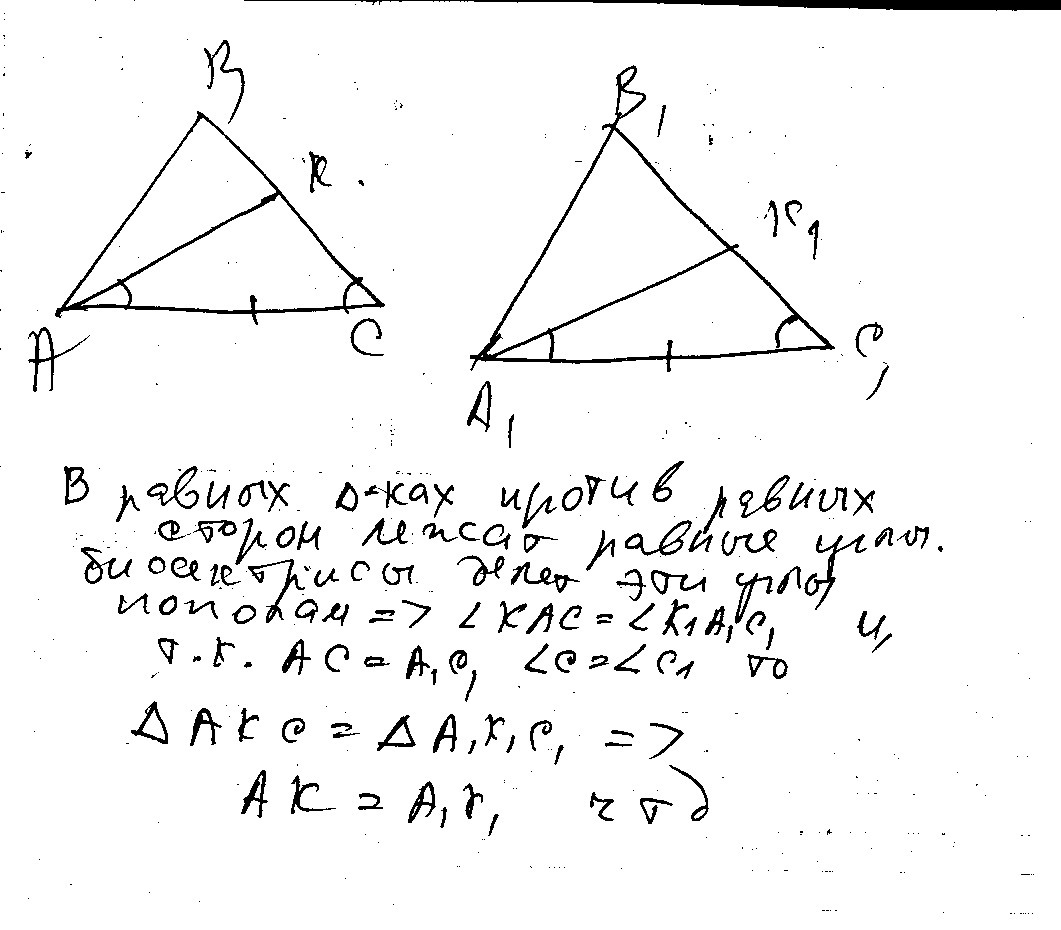 B
B1
K.
K1
A
C
C1
A1
В равных Δ-ках против равных
сторон лежат равные углы.
биссектрисы делят эти углы
пополам => ∠KAC = ∠K1A1C1 и,
т.к. AC = A1C1 ∠C = ∠C1 то
Δ AKC = Δ A1K1C1 =>
AK = A1K1 чтд